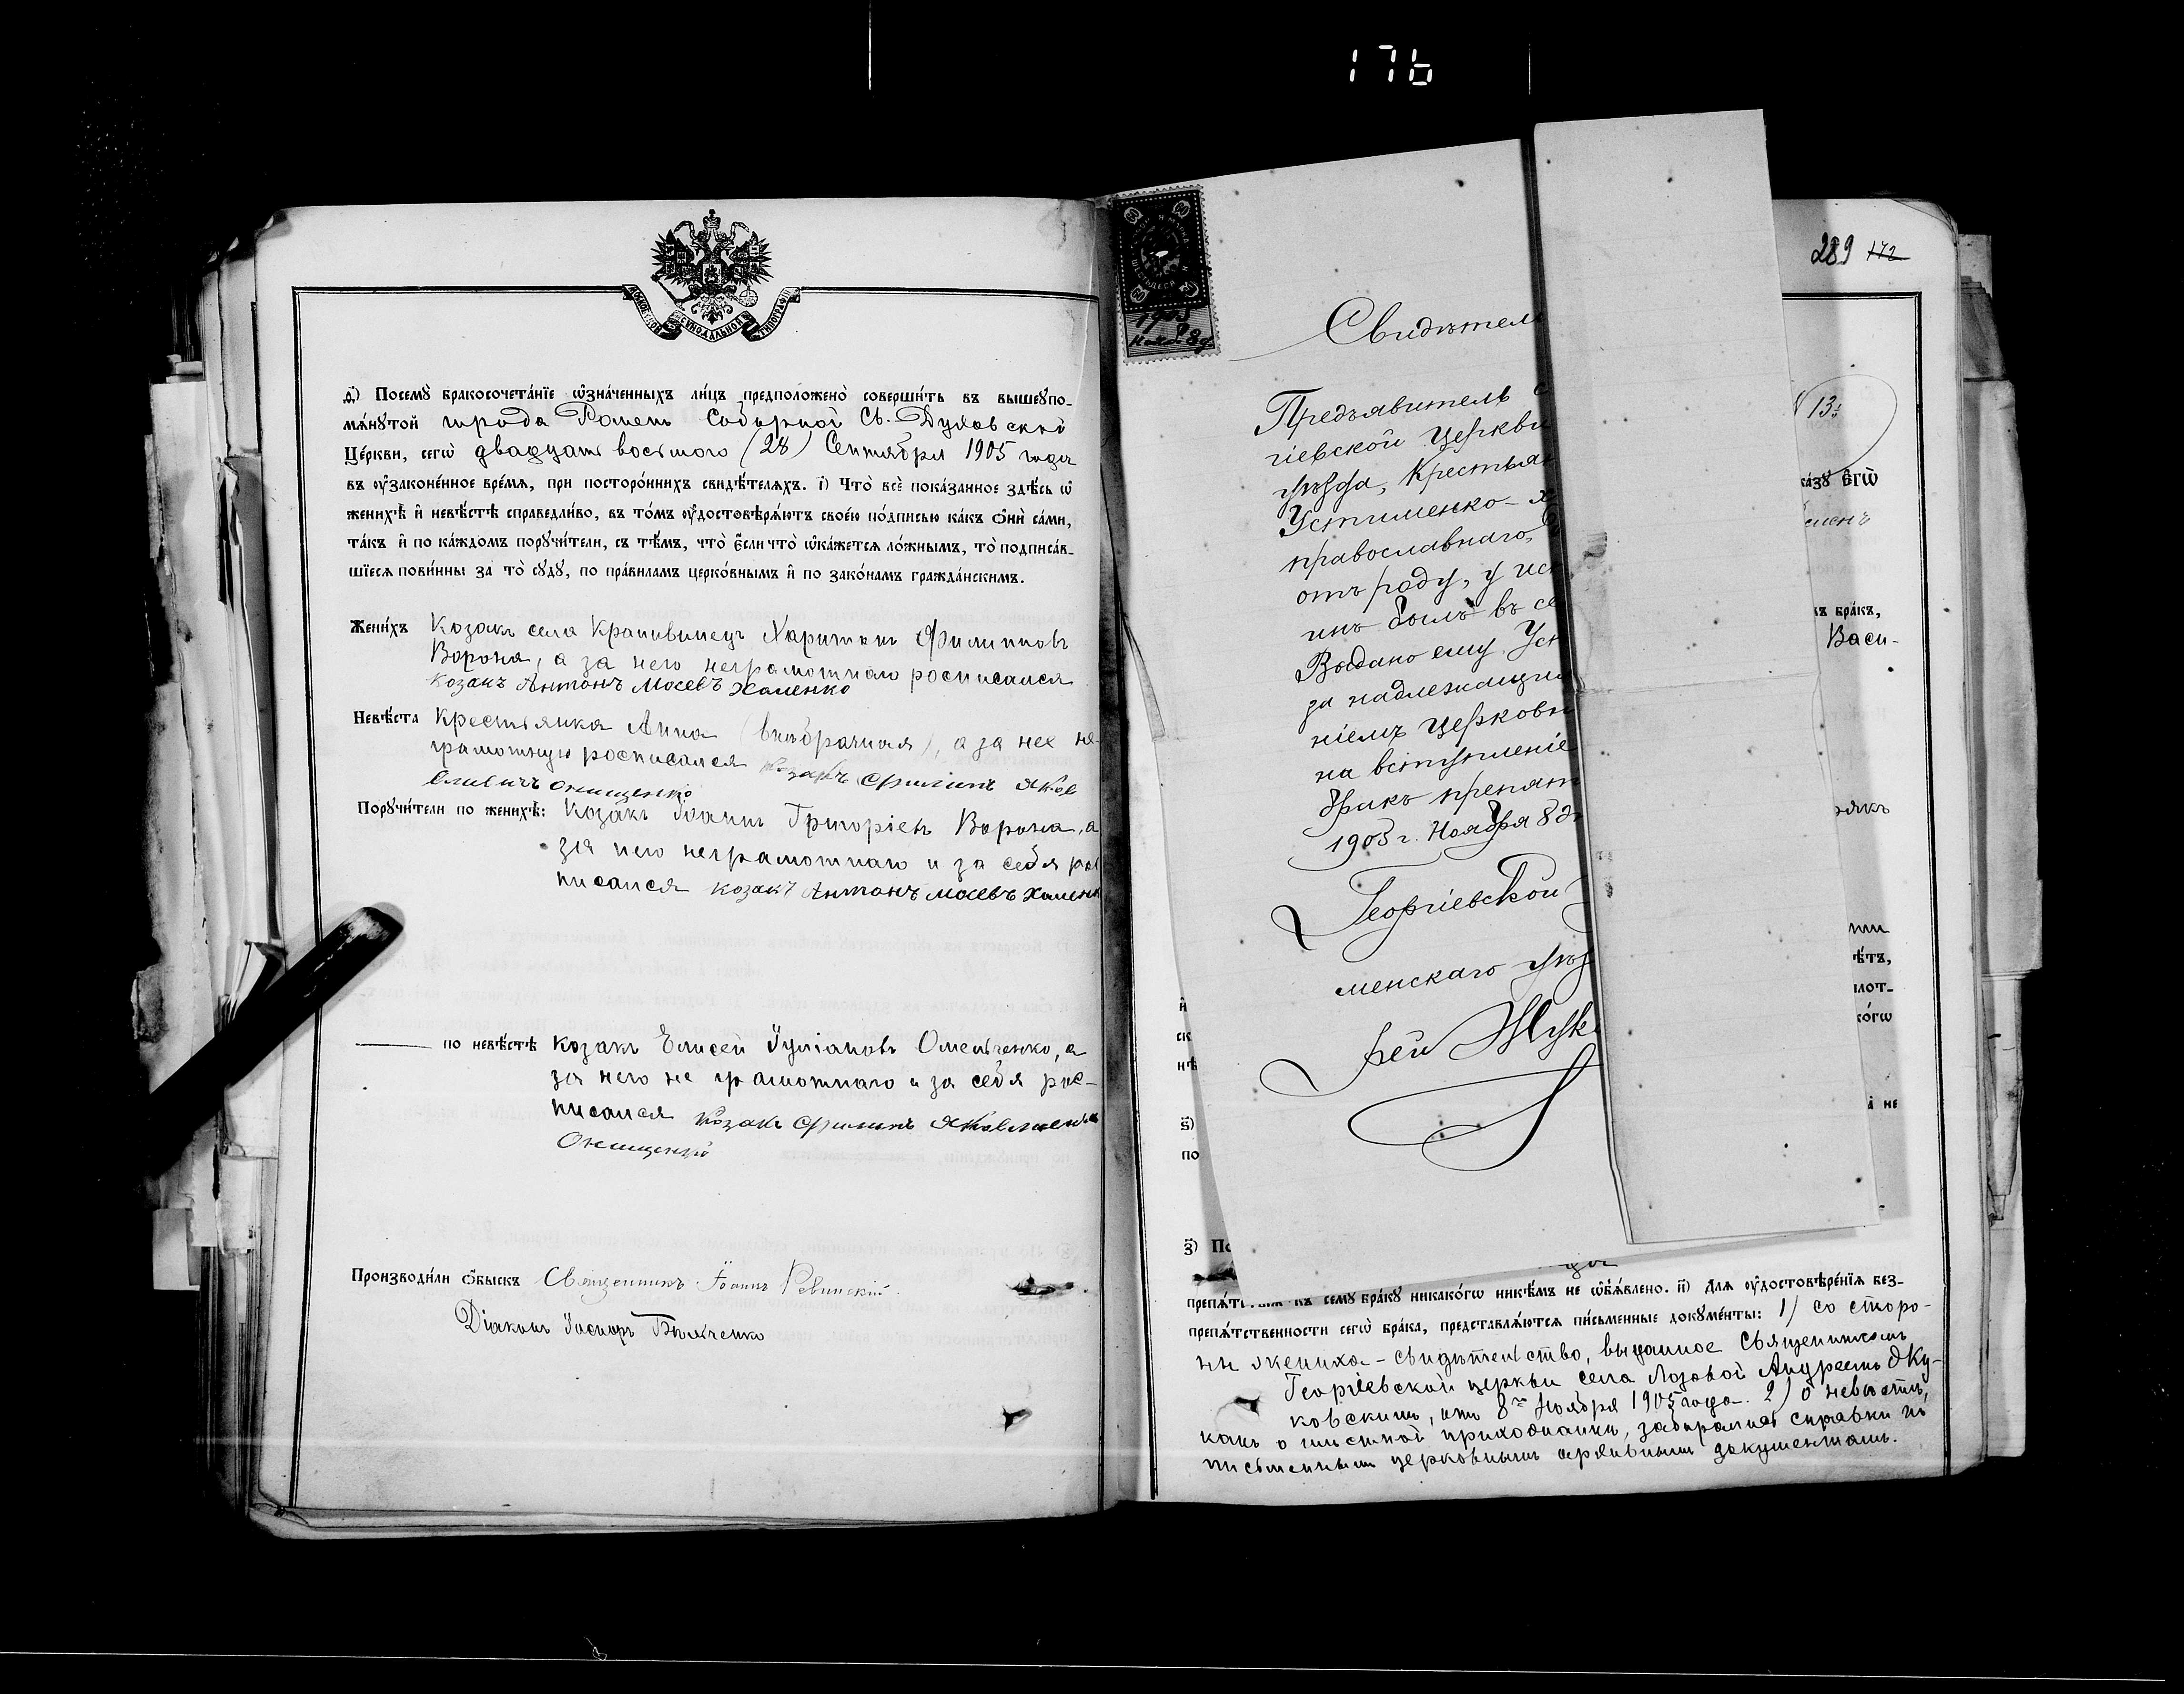 176
МОСКОВСКОЙ СѴНОДАЛЬНОЙ ТИПОГРАФІИ
д҃) Посемꙋ̀ бракосочета́нїе ѡ҆зна́ченныхъ ли́цъ предположено̀ соверши́ть въ вышеꙋпо-
мѧ́нꙋтой города Роменъ Соборной Св. Духовской
Це́ркви, сегѡ̀ двадцать восьмого (28) Сентября 1905 года
въ ᲂу҆зако́не́нное вре́мѧ, при посторо́ннихъ свидѣ́телѧхъ. і҃) Что̀ всѐ пока́занное здѣ́сь ѡ҆
женихѣ̀ и҆ невѣ́стѣ справедли́во, въ то́мъ ᲂу҆достовѣрѧ́ютъ своею по́дписью ка́къ ѻ҆нѝ са́ми,
та́къ и҆ по ка́ждомъ порꙋчи́тели, съ тѣ́мъ, что̀ є҆́сли что̀ ѡ҆ка́жетсѧ ло́жнымъ, то̀ подписа́в-
шїесѧ пови́нны за то̀ сꙋдꙋ̀, по пра́виламъ церко́внымъ и҆ по зако́намъ гражда́нскимъ.
Жени́хъ Козакъ села Крапивинецъ Харитонъ Филипповъ
Ворона, а за него неграмотнаго росписался
козакъ Антонъ Мосевъ Хаменко
Невѣ́ста Крестьянка Анна (внѣбрачная), а за нее не-
грамотную росписался козакъ Филипъ Яков
левичъ Онищенко
Порꙋчи́тели по женихѣ̀: Козакъ Іоаннъ Григоріевъ Ворона, а
за него неграмотнаго и за себя рос
писался козакъ Антонъ Мосевъ Хаменк
по невѣ́стѣ Козакъ Елисей Іуліановъ Омельченко, а
за него не грамотнаго и за себя рос-
писался Козакъ Филипъ Яковлевичъ
Онищенко
Производи́ли ѻ҆́быскъ Священникъ Іоаннъ Ревинскій
Діаконъ Іосифъ
1905
Нояб. 8 д.
Свидѣтель
Предъявитель с
гіевской церкви
уѣзда, Крестьян
Устименко-
православнаго,
отъ роду, у ис
инъ былъ въ се
Выдано ему Уст
за надлежащим
ніемъ церковн
на вступленіе
бракъ препят
1905 г. Ноября 8 д
Георгіевской
менскаго уѣз
рей Жук
289 172
N 13
ка́зꙋ є҆гѡ̀
оменъ
къ бра́къ,
Васи-
ѣ́тъ,
лот-
ко́гѡ
не
ѕ҃)
по
з҃) По
препѧ́т къ семꙋ̀ бра́кꙋ никако́гѡ никѣ́мъ не ѡ҆б̾ѧ́влено. и҃) Для ᲂу҆достовѣре́нїѧ без-
препѧ́тственности сегѡ̀ бра́ка, представлѧ́ютсѧ пи́сьменные докꙋме́нты: 1) со сторо-
ны жениха - свидѣтельство, выданное Священникомъ
Георгіевской церкви села Лозовой Андреемъ Жу-
ковскимъ, отъ 8го Ноября 1905 года. 2) О невѣстѣ,
какъ о мѣстной прихожанкѣ, забирались справки по
письменнымъ церковнымъ архивнымъ документамъ.